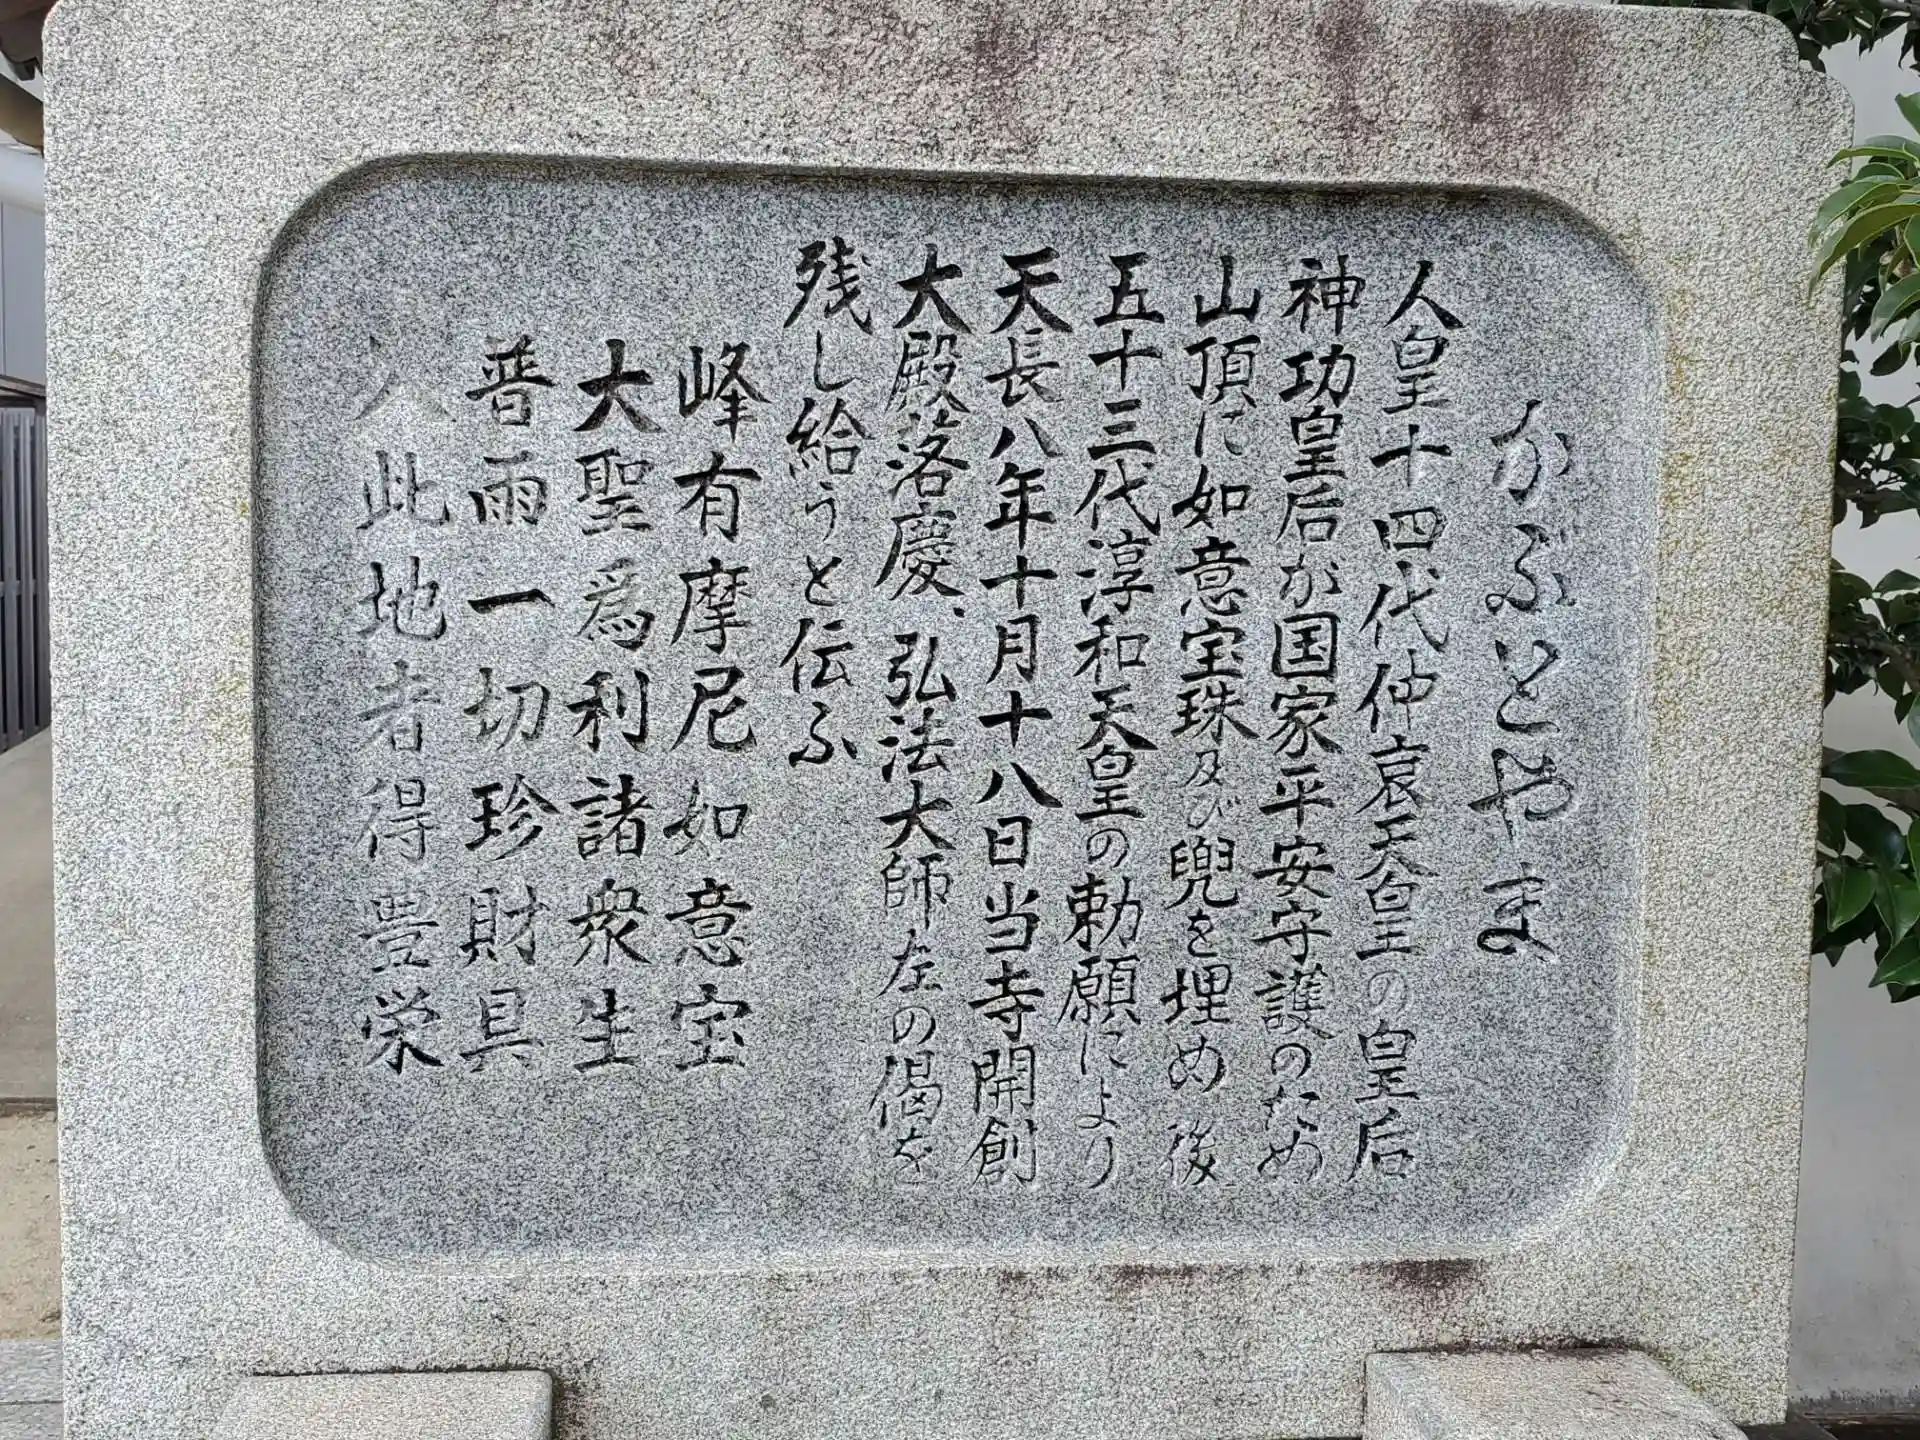 かぶとやま
人皇十四代仲哀天皇の皇后
神功皇后が国家平安守護のため
山頂に如意宝珠及び兜を埋め後
五十三代淳和天皇の勅願により
天長八年十月十八日当寺開創
大殿落慶、弘法大師左の偈を
残し給うと伝ふ
峰有摩尼如意宝
大聖為利諸衆生
普雨一切珍財具
人此地者得豊栄